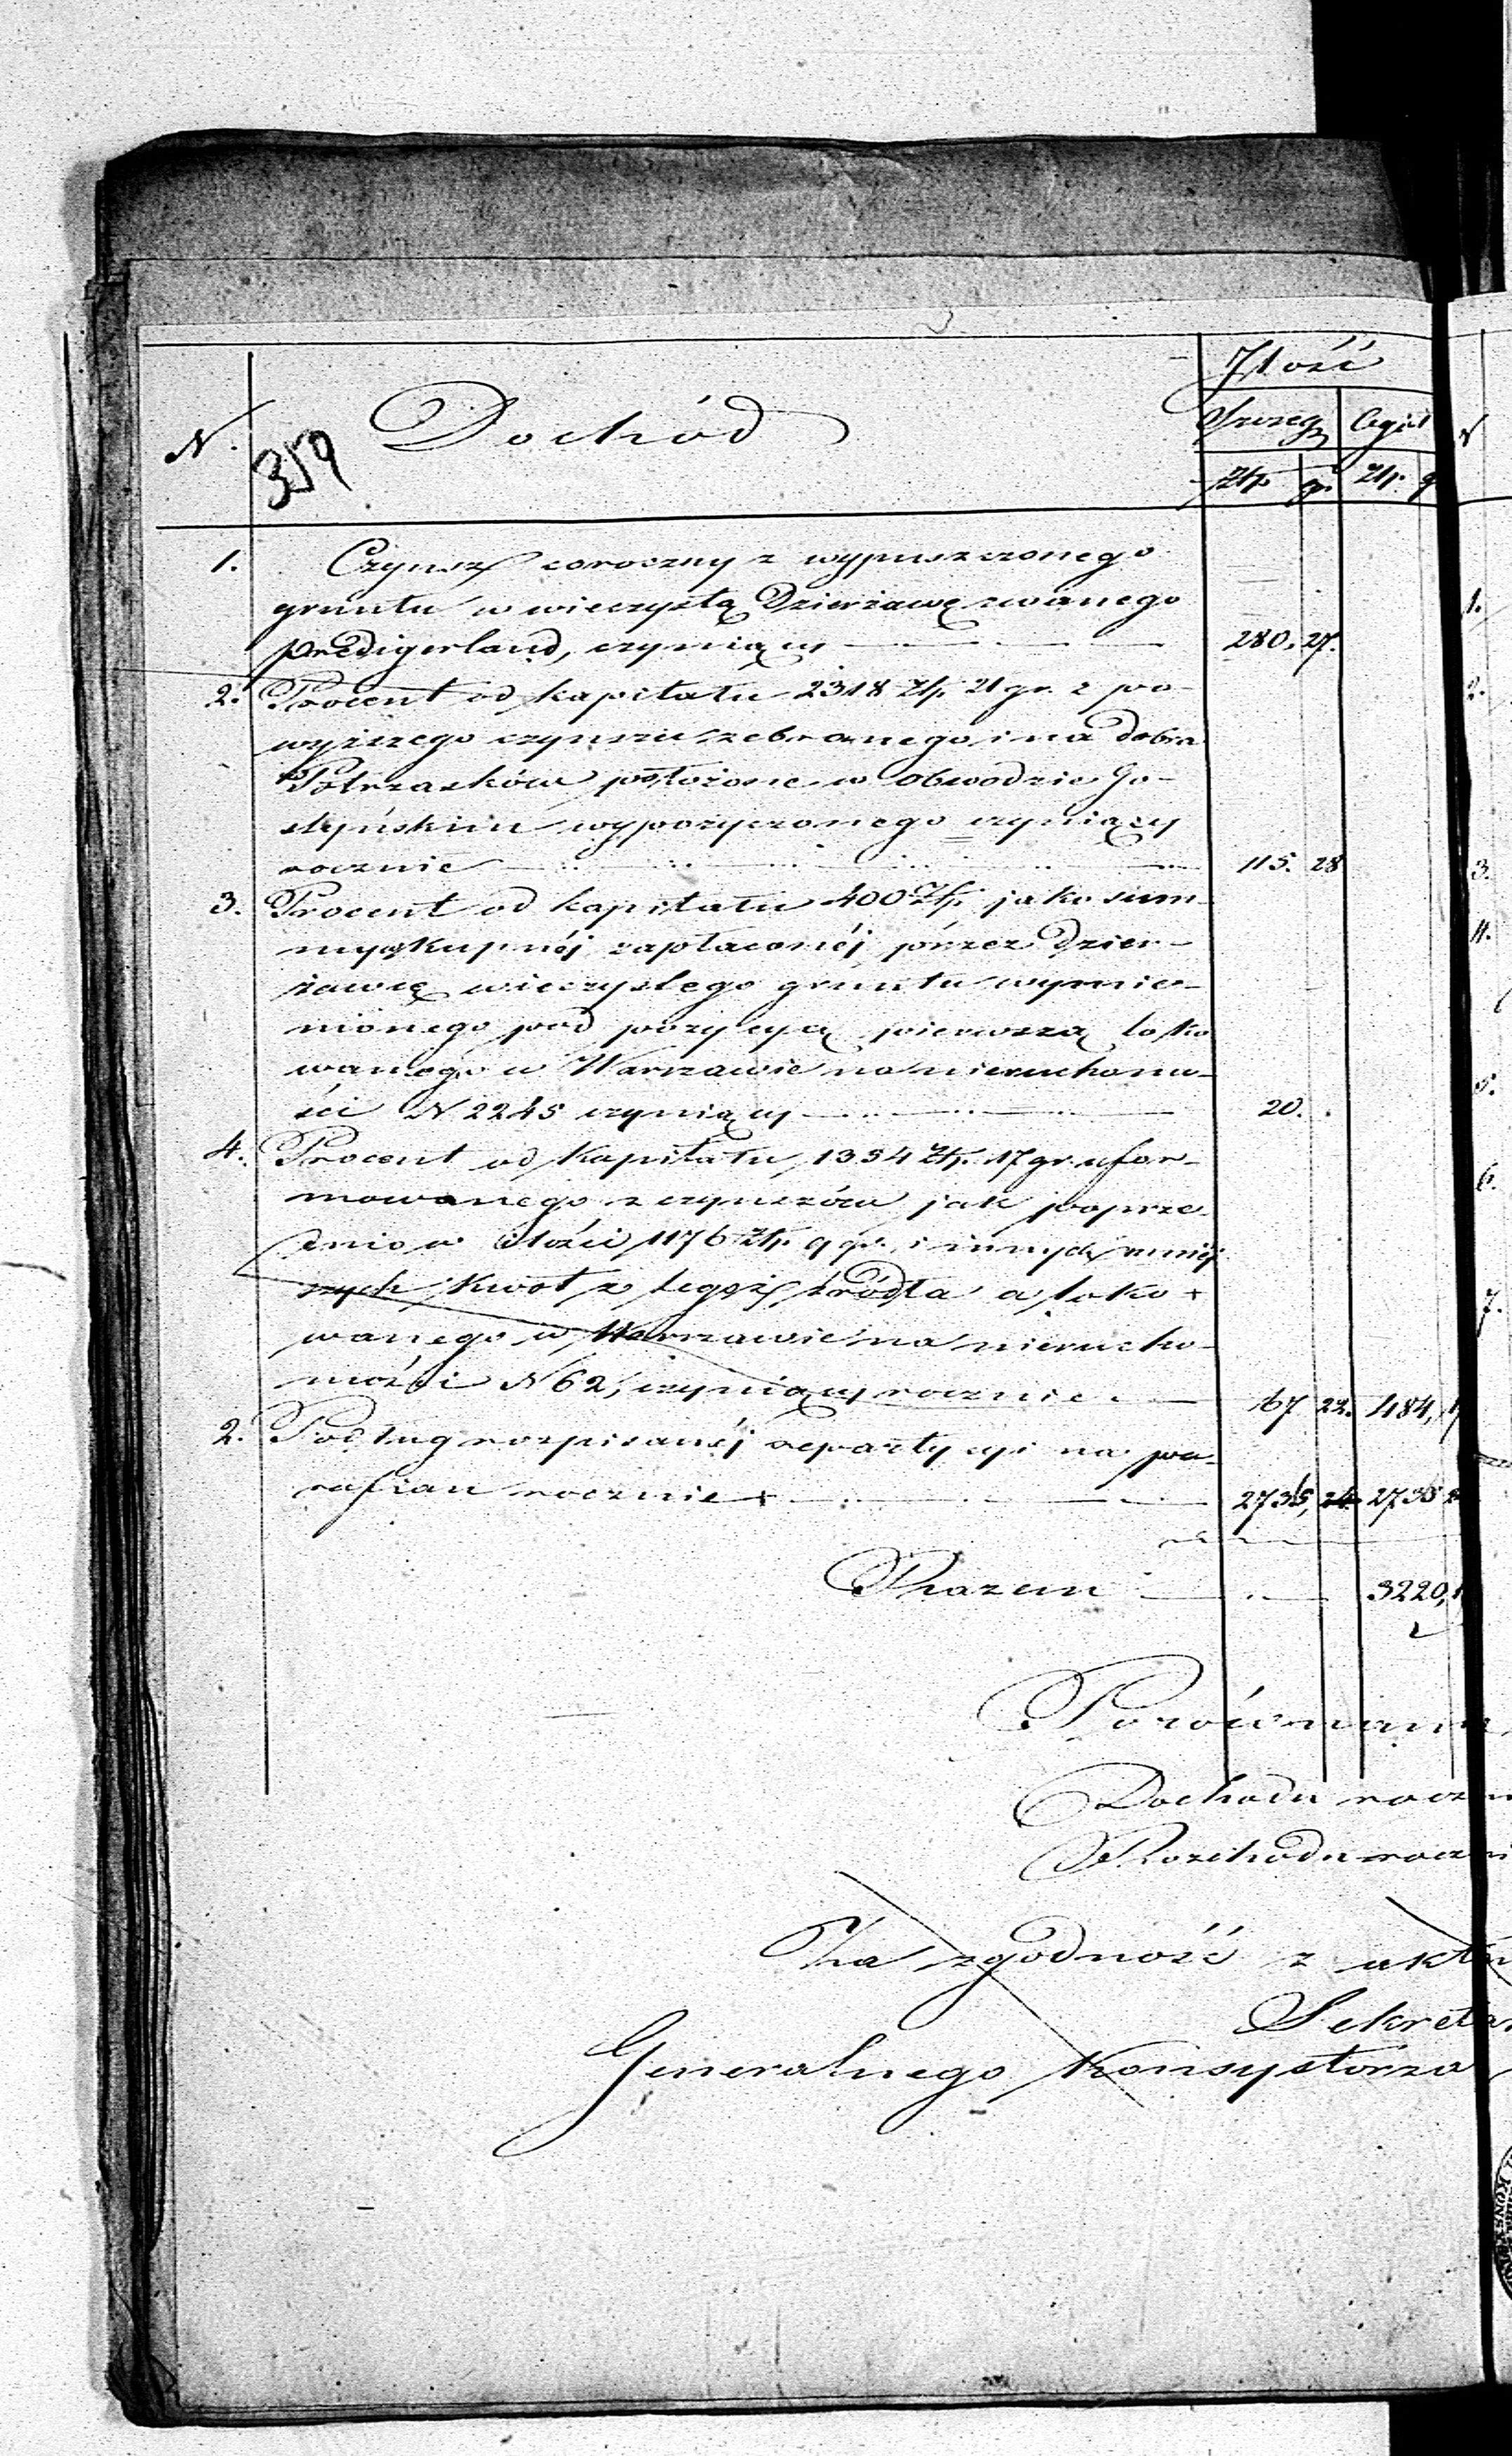 Ilość
N. 359 Dochód Szczeg Ogół
Ztp. gr. Ztp. g
1. Czynsz coroczny z wypuszczonego
gruntu w wieczystą Dzierżawę zwanego
predigerland, czyniący 280. 27.
2. Procent od kapitału 2318 Ztp. 21 gr. z po-
wyższego czynszu zebranego i na dobra
Potrzasków położone w obwodzie Go-
styńskim wypożyczonego czyniący
rocznie 115. 28
3. Procent od kapitału 400 Ztp. jako sum-
my kupnej zapłaconej przez Dzier-
żawcę wieczystego gruntu wymie-
nionego pod pozycyą pierwszą loko
wanego w Warszawie na nieruchomo-
ści N 2245 czyniący 20. .
4. Procent od Kapitału 1354 Ztp. 17 gr. ufor-
mowanego z czynszów jak poprze-
dnio w ilości 1176 Ztp. 9 gr. i innych mniej
szych kwot z tegoż źródła a loko
wanego w Warszawie na nierucho-
mości N 62, czyniący rocznie 67 22. 484, 1
2. Podług rozpisanej repartycyi na pa-
rafian rocznie 2735, 24. 2735 2
Razem 3220, 1
Porównanie
Dochodu roczn
Rozchodu roczni
Za zgodność z akta
Sekretar
Generalnego Konsystorza